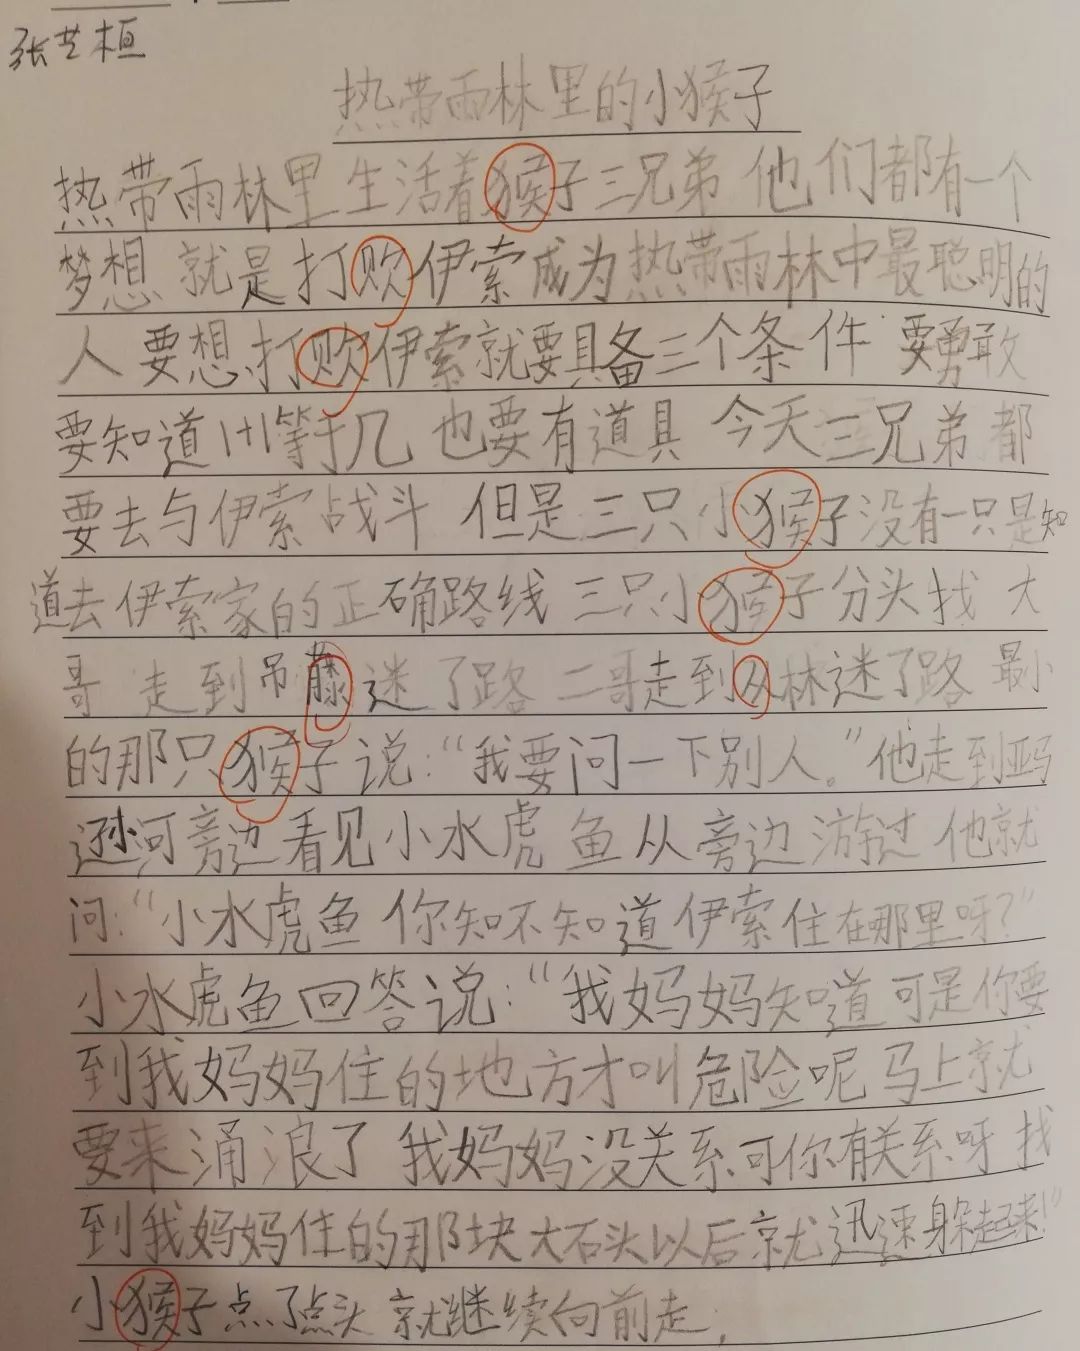 张艺桓
热带雨林里的小猴子
热带雨林里生活着猴子三兄弟 他们都有一个
梦想 就是打败伊索成为热带雨林中最聪明的
人 要想打败伊索就要具备三个条件 要勇敢
要知道1+1等于几 也要有道具 今天三兄弟都
要去与伊索战斗 但是三只小猴子没有一只是知
道去伊索家的正确路线 三只小猴子分头找 大
哥 走到吊藤迷了路 二哥走到丛林迷了路 最小
的那只猴子说：“我要问一下别人。”他走到亚马
逊河旁边看见小水虎鱼从旁边游过 他就
问：“小水虎鱼 你知不知道伊索住在那里呀？”
小水虎鱼回答说：“我妈妈知道 可是你要
到我妈妈住的地方才叫危险呢 马上就
要来涌浪了 我妈妈没关系可你有关系呀 找
到我妈妈住的那块大石头以后就迅速躲起来！”
小猴子点了点头 就继续向前走，